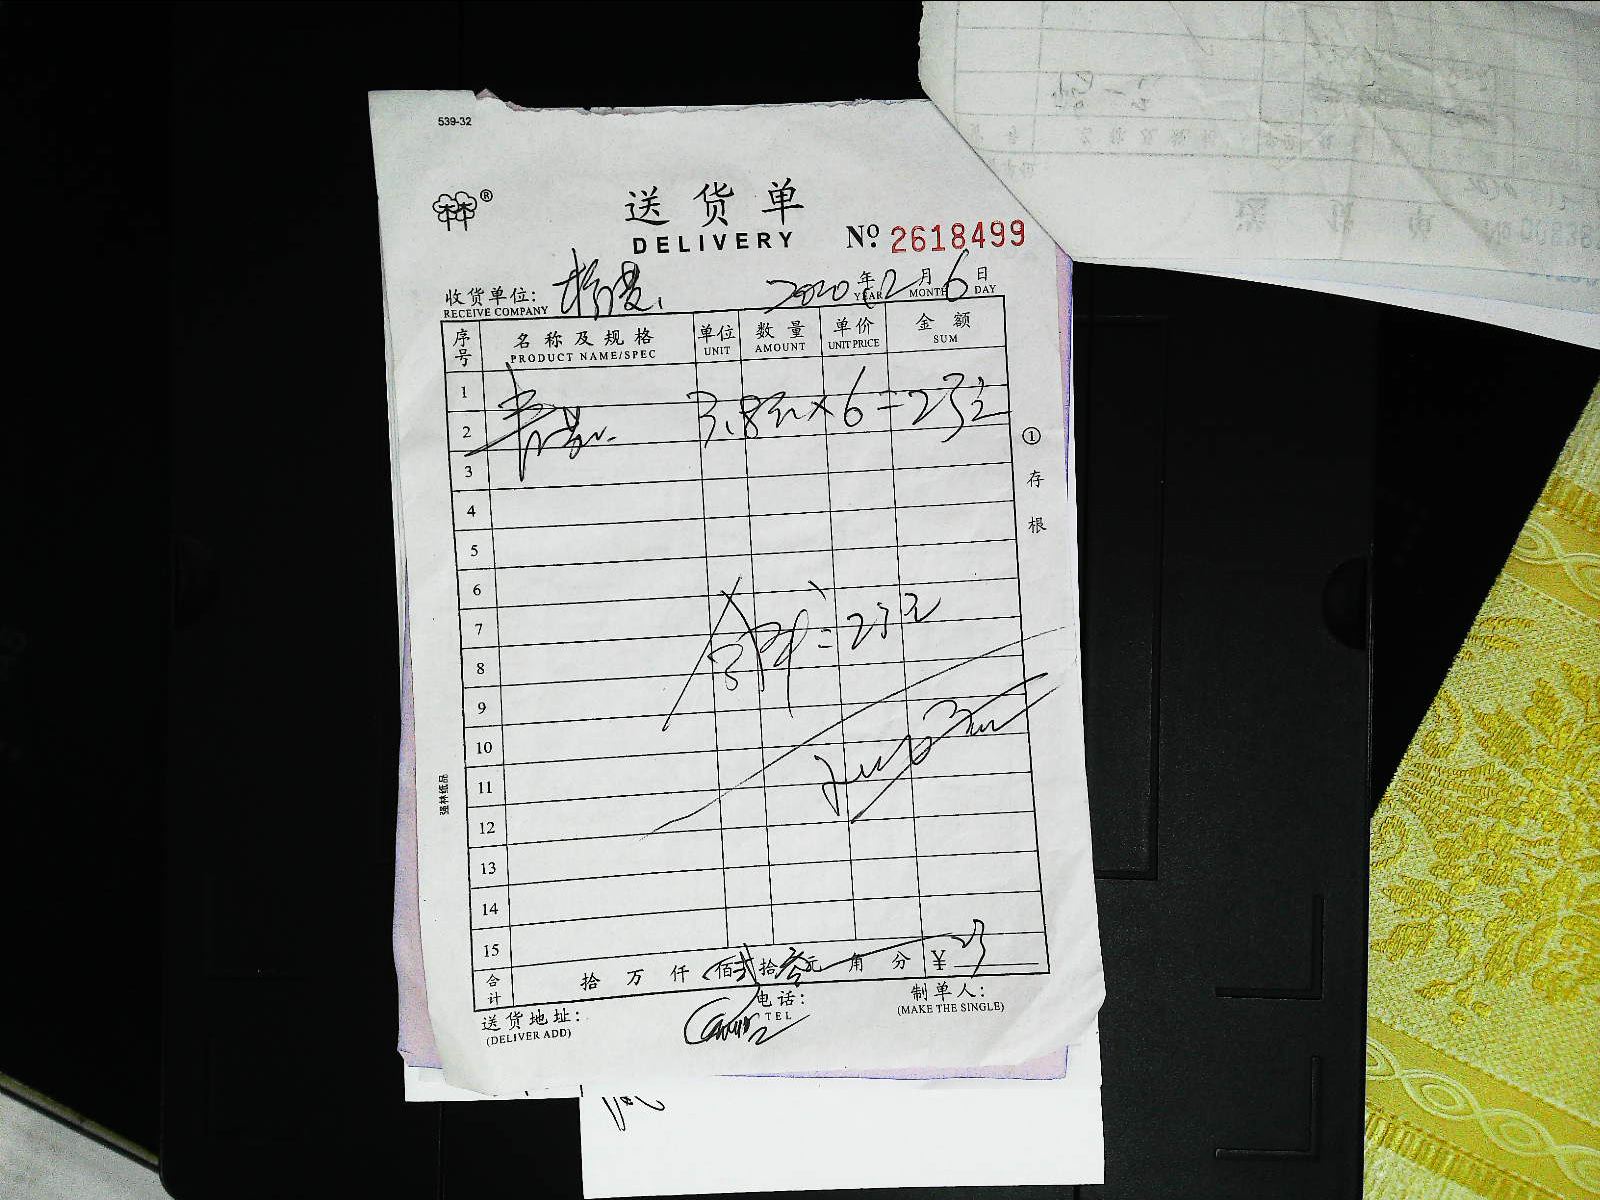 539-32
®
送货单
DELIVERY № 2618499
收货单位: 2020年12月6日
RECEIVE COMPANY YEAR MONTH DAY
序号 名称及规格 单位 数量 单价 金额
PRODUCT NAME/SPEC UNIT AMOUNT UNIT PRICE SUM
1
2 3.8元×6=23元
3
4
5
6
7 合计=23元
8
9
10
11
12
13
14
15
合计 拾 万 仟 佰 贰 拾 叁 元 角 分 ¥23
送货地址: 电话: 制单人:
(DELIVER ADD) TEL (MAKE THE SINGLE)
① 存根
强林纸品